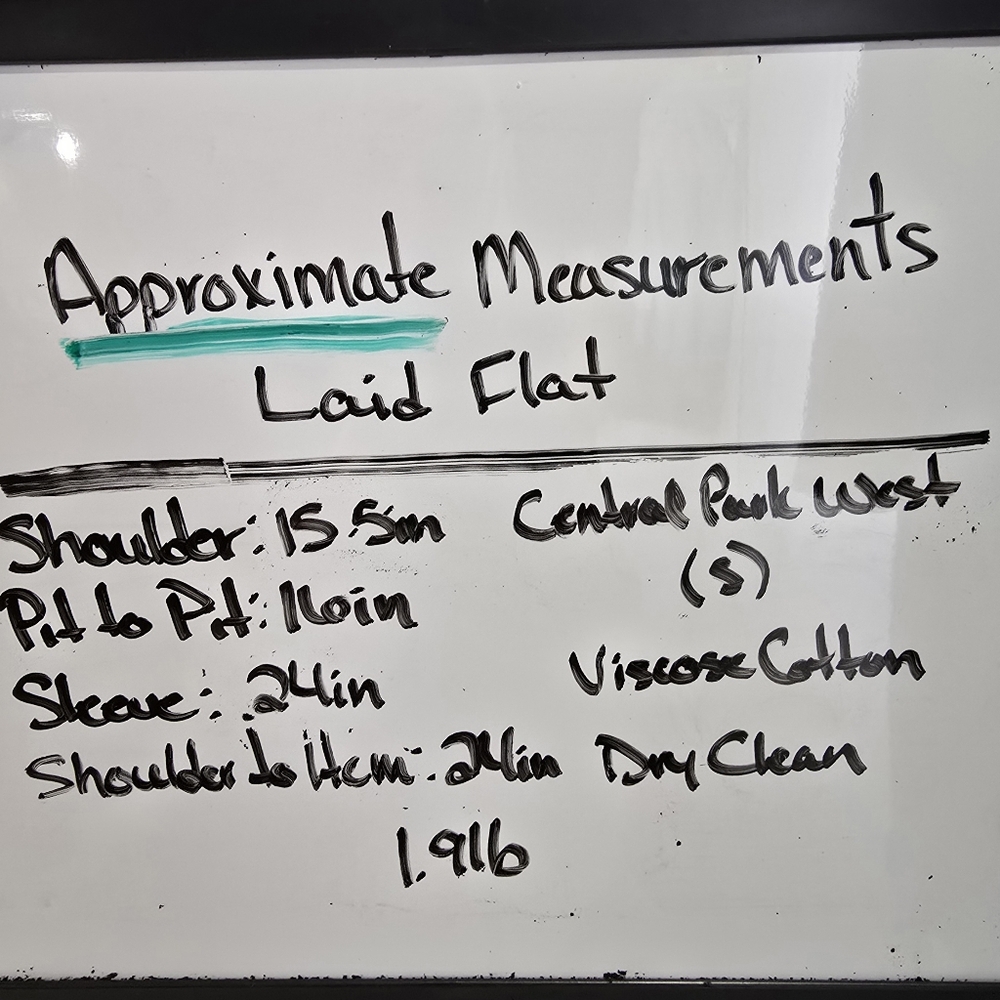 Approximate Measurements
Laid Flat
Shoulder: 15.5in
Pit to Pit: 16in
Sleeve: 24in
Shoulder to Hem: 24in
Central Park West
(S)
Viscose Cotton
Dry Clean
1.9lb